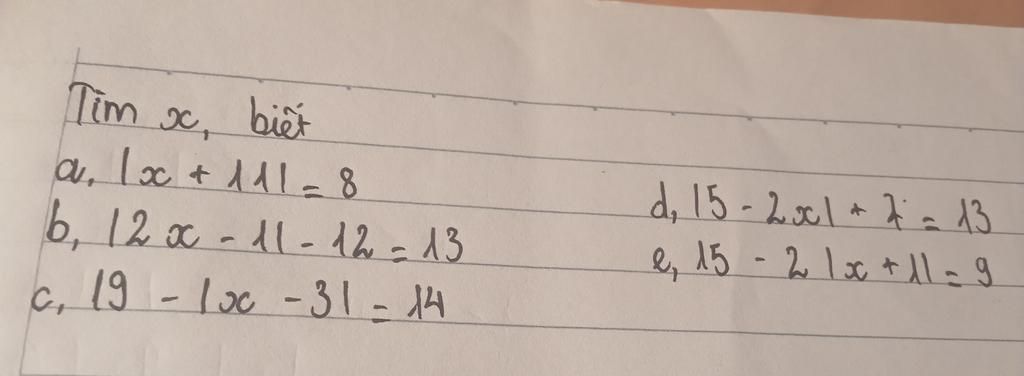 Tìm x, biết
a, |x + 11| = 8
b, |2x - 1| - 12 = 13
c, 19 - |x - 3| = 14
d, |5 - 2x| + 7 = 13
e, 15 - 2|x + 1| = 9